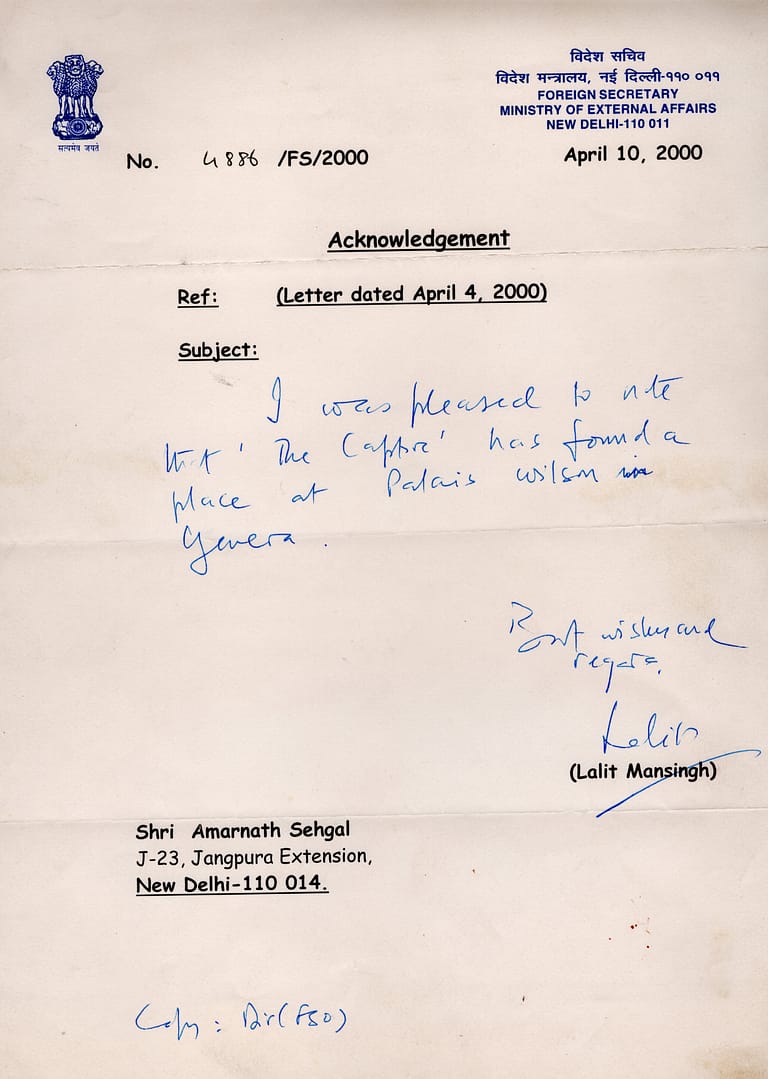 विदेश सचिव
विदेश मन्त्रालय, नई दिल्ली-११० ०११
FOREIGN SECRETARY
MINISTRY OF EXTERNAL AFFAIRS
NEW DELHI-110 011
सत्यमेव जयते
No. 4886 /FS/2000
April 10, 2000
Acknowledgement
Ref: (Letter dated April 4, 2000)
Subject:
I was pleased to note
that 'The Captive' has found a
place at Palais Wilson in
Geneva.
Best wishes and
regards,
Lalit
(Lalit Mansingh)
Shri Amarnath Sehgal
J-23, Jangpura Extension,
New Delhi-110 014.
Copy : Dir(FSO)